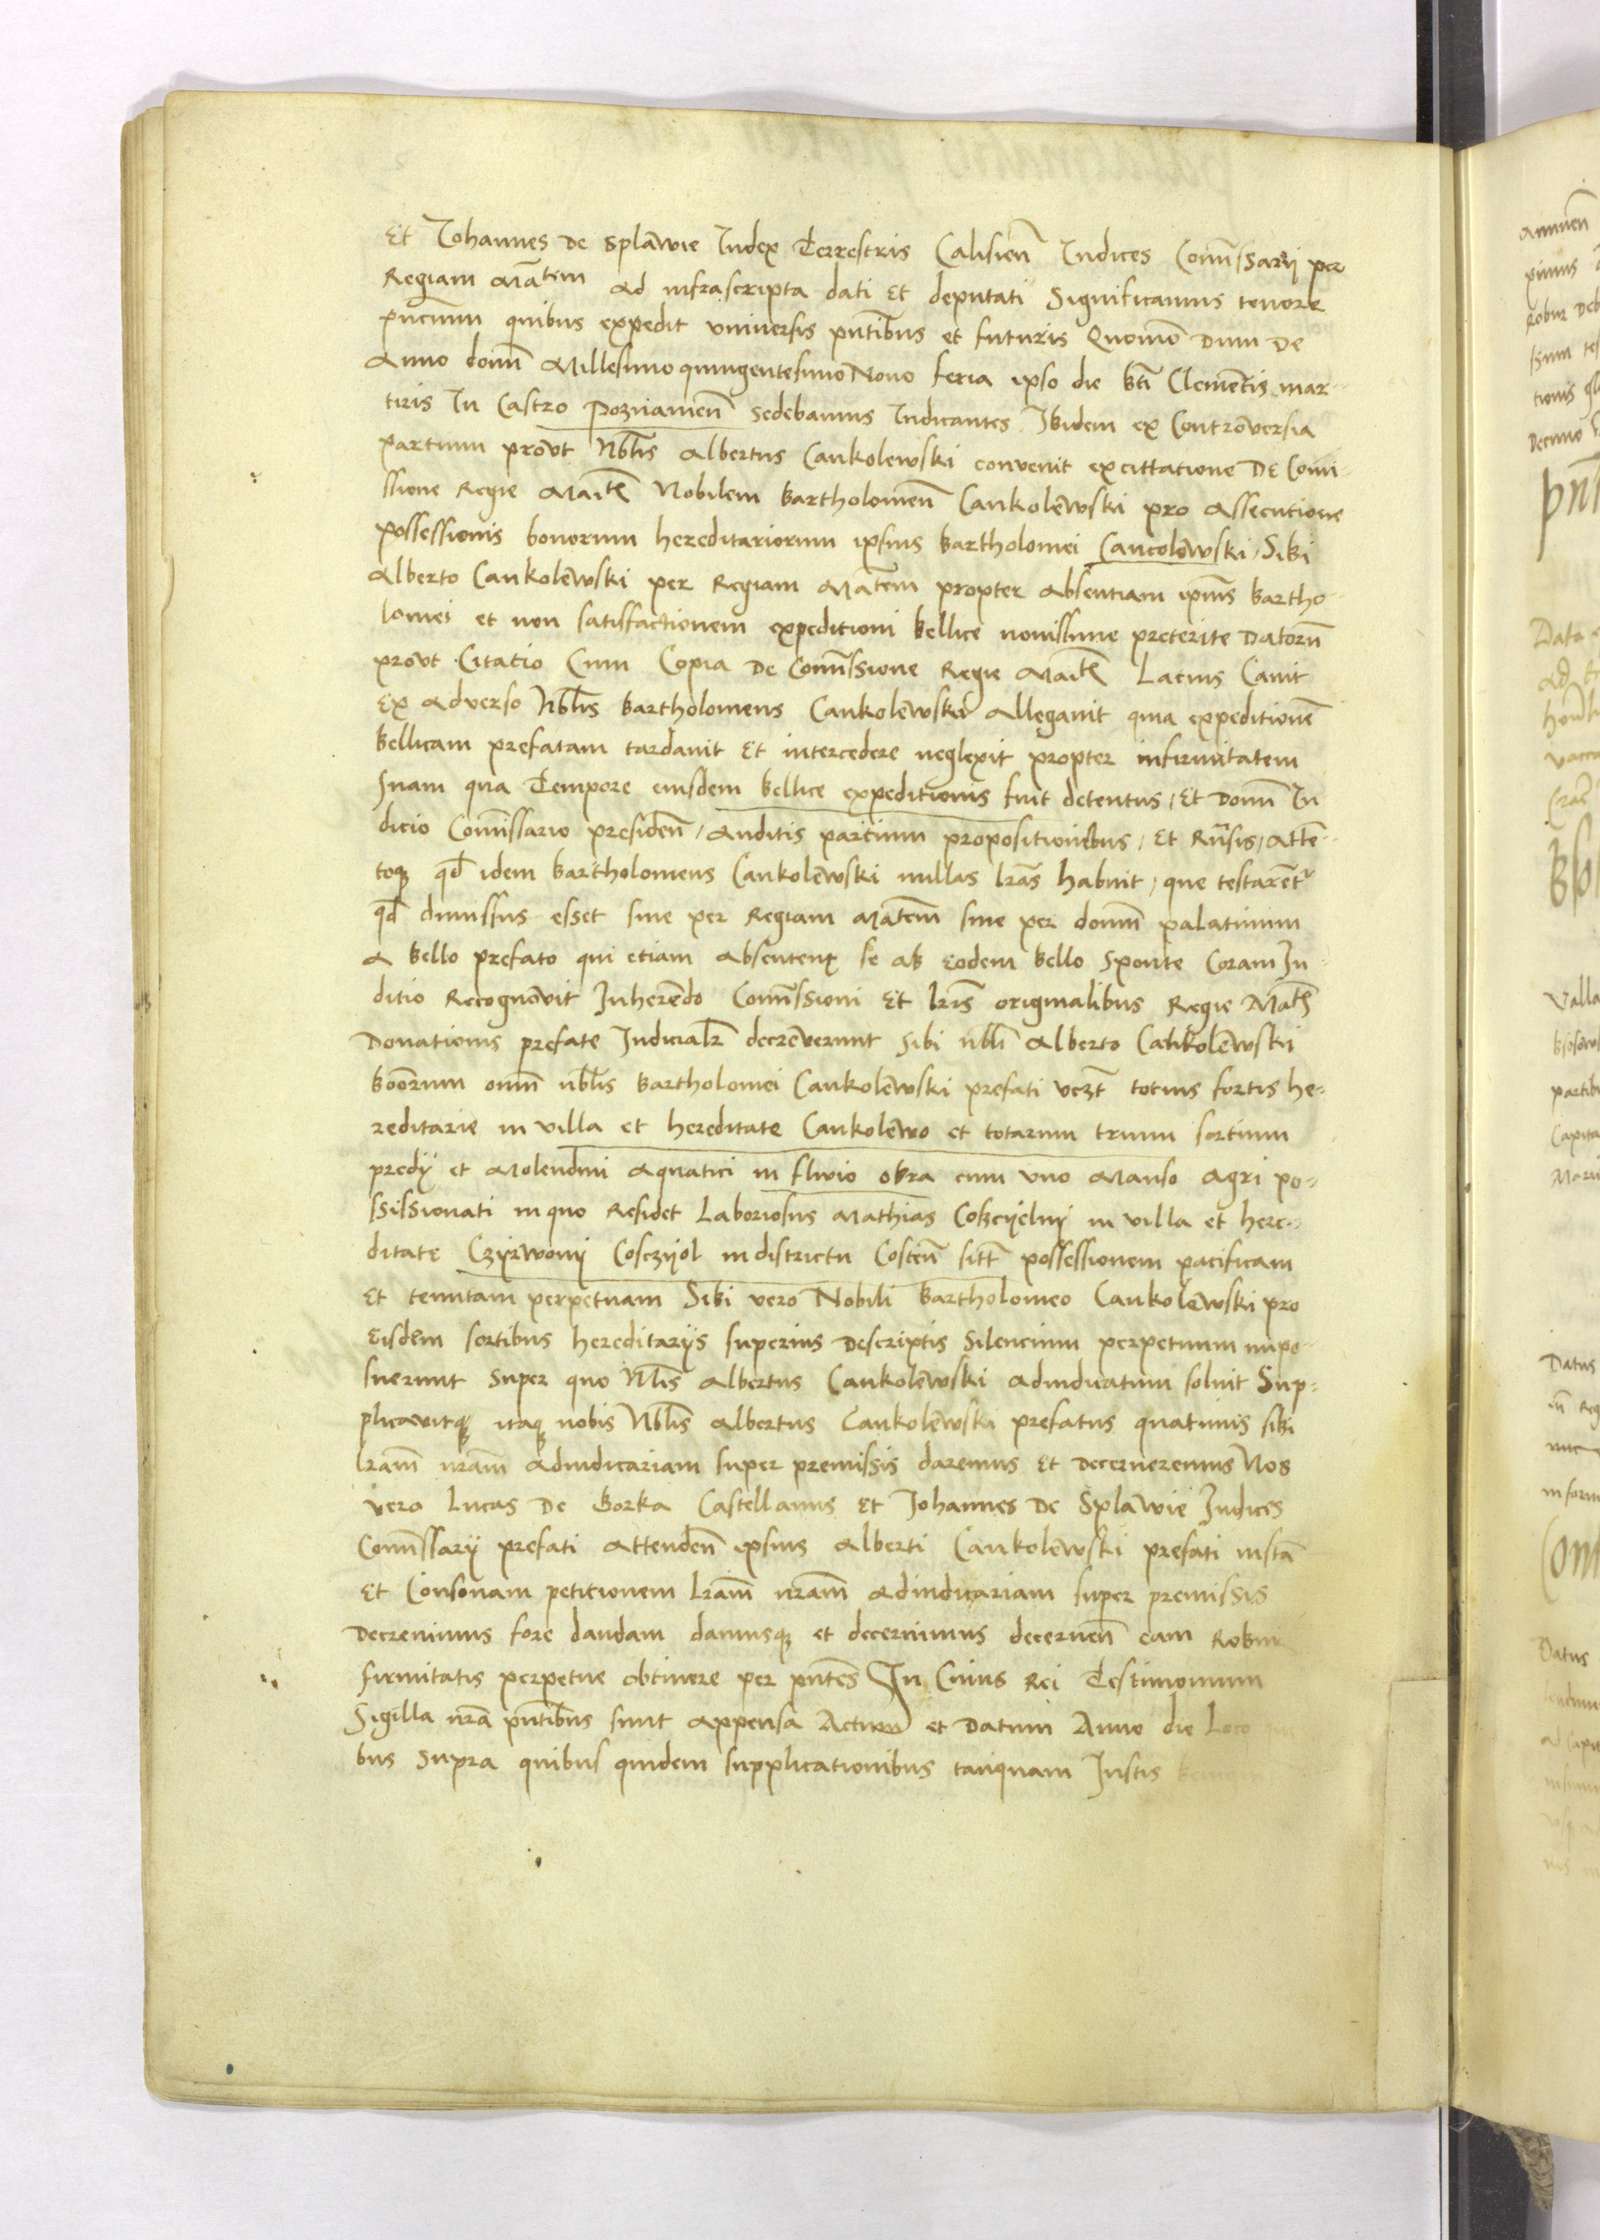 Et Iohannes de Splawie Iudex Terrestris Calisien̄ Iudices Com̄issarij per
Regiam Ma͞tem ad infrascripta dati et deputati Significamus tenore
pn̄cium quibus expedit vniuersis pn̄tibus et futuris Quomō dum de
Anno domī Millesimo quingentesimo Nono feria ipso die bt̄i Clemētis mar-
tiris In Castro Poznanien̄ sedebamus Iudicantes Ibidem ex Controversia
partium provt Nb̄lis Albertus Cankolewski convenit ex cittatione de Comi-
ssione Regie Mait̄s Nobilem Bartholomeū Cankolēwski pro assecutione
possessionis bonorum hereditariorum ipsius Bartholomei Cancolēwski, Sibi
Alberto Cankolēwski per Regiam Mātem propter absentiam ipiūs Bartho-
lomei et non satisfactionem expeditioni bellice nouissime preterite datorū
provt Citatio Cum Copia de Com̄issione Regie Mait̄s Lacius Canit
Ex adverso Nb̄lis Bartholomeus Cankolēwski allegauit quia expeditionē
bellicam prefatam tardauit et intercedere neglexit propter infirmitatem
suam qua Tempore eiusdem bellice expeditionis fuit detentus, Et Domī Iu
dicio Com̄issario presiden̄, auditis partium propositionibus, Et Rn̄sis, atte-
toq; qd̄ idem Bartholomeus Cankolēwski nullas lr̄as habuit, que testarēt'
qd̄ dimissus esset siue per Regiam Matem̄ siue per domī palatinum
a bello prefato qui etiam absentem se ab eodem bello sponte Coram Iu-
ditio Recognōvit Inherēdo Com̄issioni Et lr̄is originalibus Regie Mat̄s
Donationis prefate Iudicialr̄ decrēverunt sibi nb̄li Alberto Cankolēwski
bonōrum om̄i nb̄lis Bartholomei Cankolēwski prefati vczt̄ totius sortis he-
reditarie in villa et hereditate Cankolēwo et totarum trium sortium
predij et Molendini aquatici in fluvio obra cum vno Manso agri po-
ssissionati in quo Residet Laboriosus Mathias Coszcijelnij in villa et here-
ditate Czijrwonij Cosczijol in districtu Costen̄ sitt̄ possessionem pacificam
Et tenutam perpetuam Sibi vero Nobili Bartholomeo Cankolēwski pro
eisdem sortibus hereditarijs superius descriptis Silencium perpetuum impo-
suerunt super quo Nb̄lis Albertus Cankolēwski adiudicatum soluit Sup-
plicavitq; itaq; nobis Nb̄lis Albertus Cankolēwski prefatus quatinus sibi
lr̄am̄ nr̄am̄ adiudicariam super premissis daremus et decerneremus Nos
vero Lucas de Gorka Castellanus et Johannes de Splawie Iudices
Com̄issarij prefati attenden̄ ipsius Alberti Cankolēwski prefati iustā
et Consonam petitionem lr̄am̄ nr̄am̄ adiudicariam super premissis
Decreuimus fore dandam damusq; et decernimus decernen̄ eam Robur
firmitatis perpetue obtinere per pn̄tes In Cuius Rei Testimonium
Sigilla nr̄a pn̄tibus sunt appensa Actum et Datum Anno die Loco
bus supra quibus quidem supplicationibus tanquam Iustis